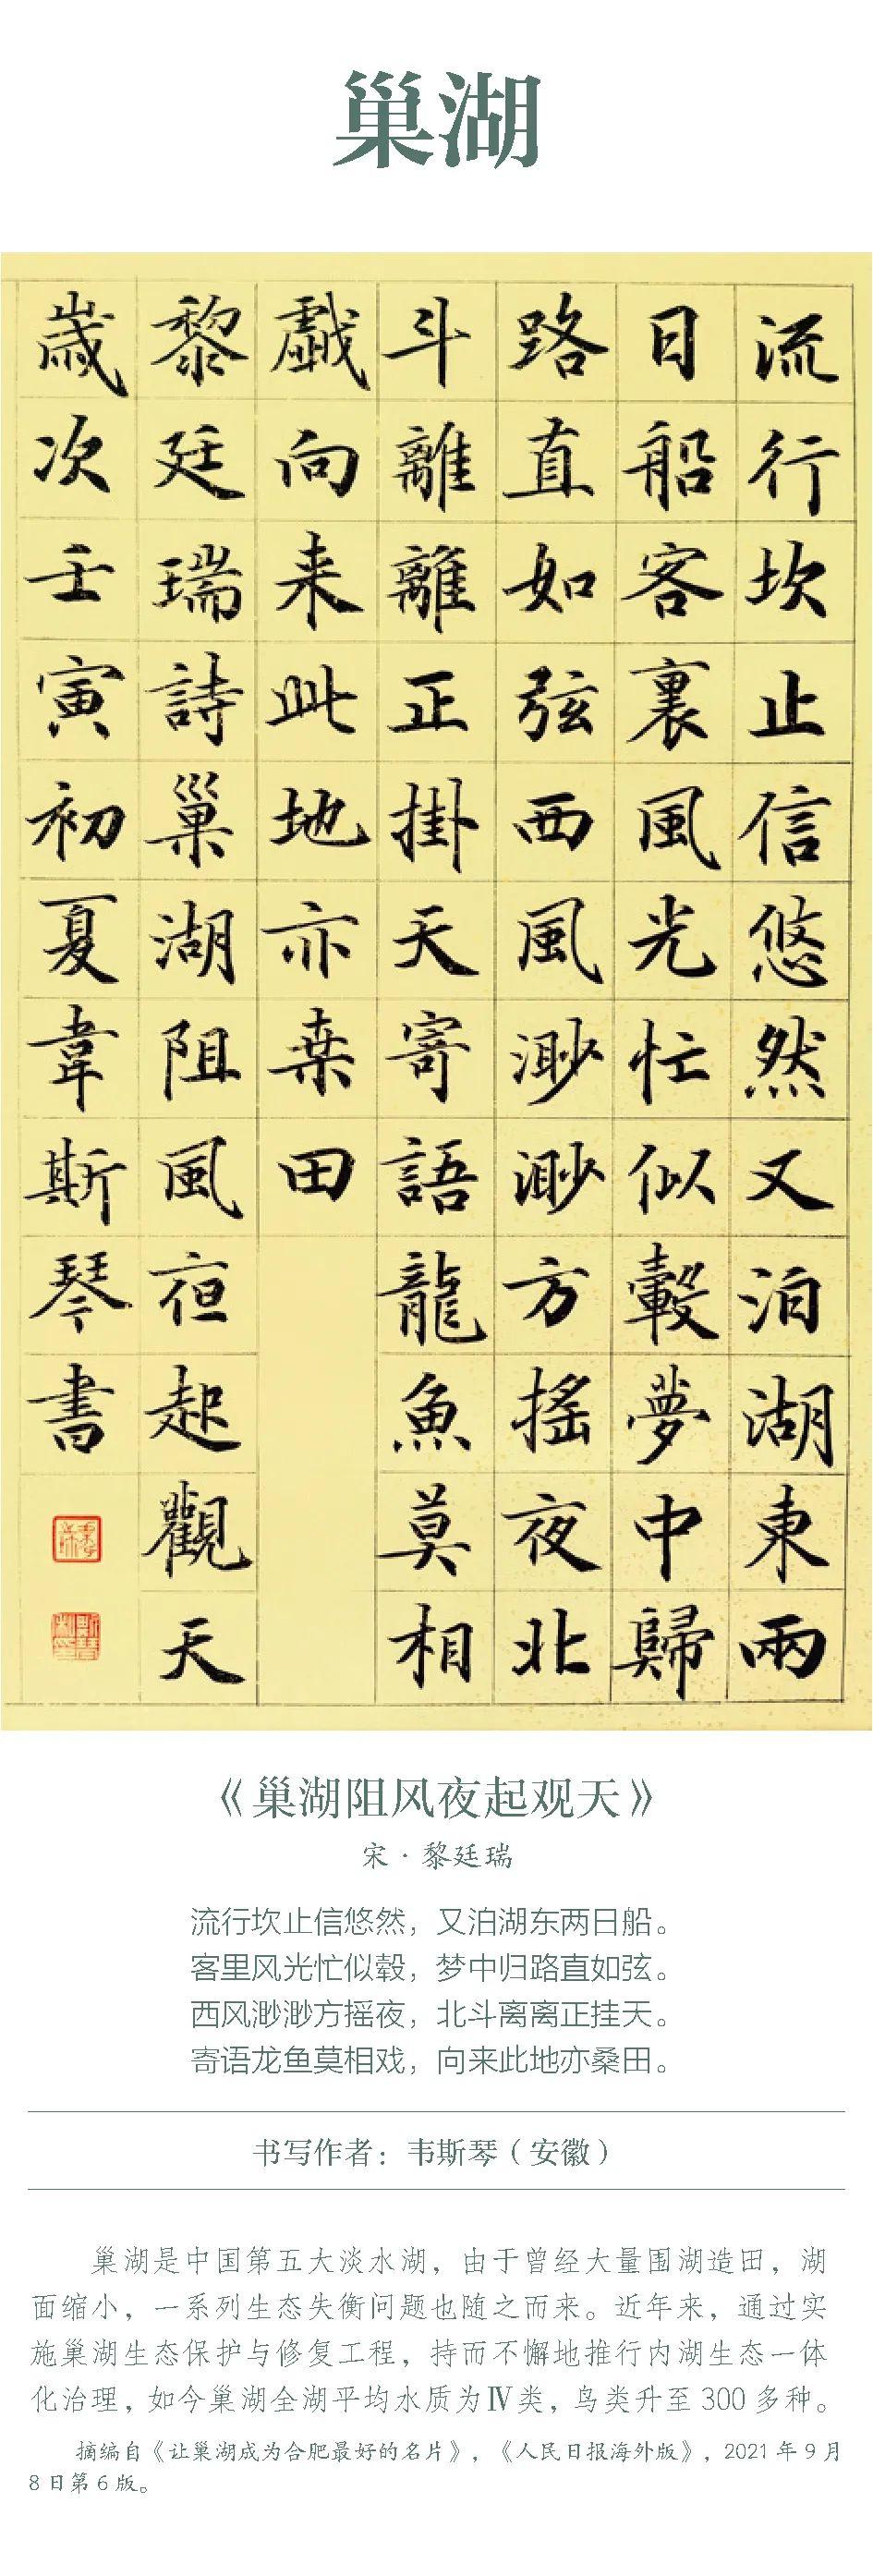 巢湖
流行坎止信悠然又泊湖東兩
日船客裏風光忙似轂夢中歸
路直如弦西風渺渺方摇夜北
斗離離正掛天寄語龍魚莫相
戲向来此地亦桒田
黎廷瑞詩巢湖阻風夜起觀天
歲次壬寅初夏韋斯琴書
《巢湖阻风夜起观天》
宋·黎廷瑞
流行坎止信悠然，又泊湖东两日船。
客里风光忙似毂，梦中归路直如弦。
西风渺渺方摇夜，北斗离离正挂天。
寄语龙鱼莫相戏，向来此地亦桑田。
书写作者：韦斯琴（安徽）
巢湖是中国第五大淡水湖，由于曾经大量围湖造田，湖
面缩小，一系列生态失衡问题也随之而来。近年来，通过实
施巢湖生态保护与修复工程，持而不懈地推行内湖生态一体
化治理，如今巢湖全湖平均水质为Ⅳ类，鸟类升至 300 多种。
摘编自《让巢湖成为合肥最好的名片》，《人民日报海外版》，2021 年 9 月
8 日第 6 版。